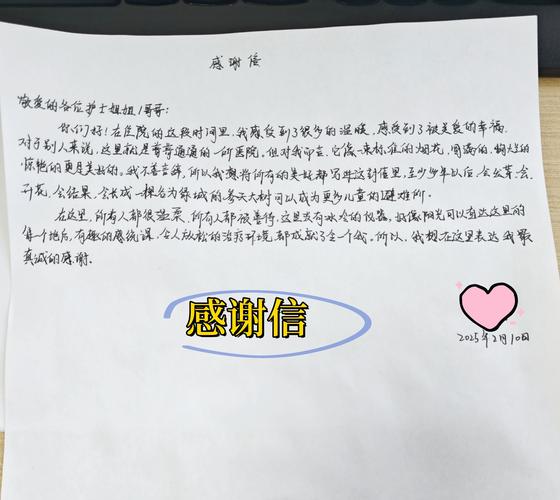 感谢信
敬爱的各位护士姐姐/哥哥:
你们好!在医院的这段时间里,我感受到了很多的温暖,感受到了被关爱的幸福。
对于别人来说,这里就是普普通通的一所医院。但对我而言,它像一束标准的烟花,
惊艳的更是美好的。我不善言辞,所以我想将所有的美好都写进这封信里,至少多年以后,会发芽,会
开花,会结果,会长成一棵名为绿城的参天大树可以成为更多儿童的避难所。
在这里,所有人都很温柔,所有人都很善待,这里没有冰冷的仪器,好像阳光可以直达这里的
每一个地方,有趣的感统课,令人放松的治疗环境,都成就了全一个我。所以,我想在这里表达我最
真诚的感谢。
感谢信
2025年2月10日